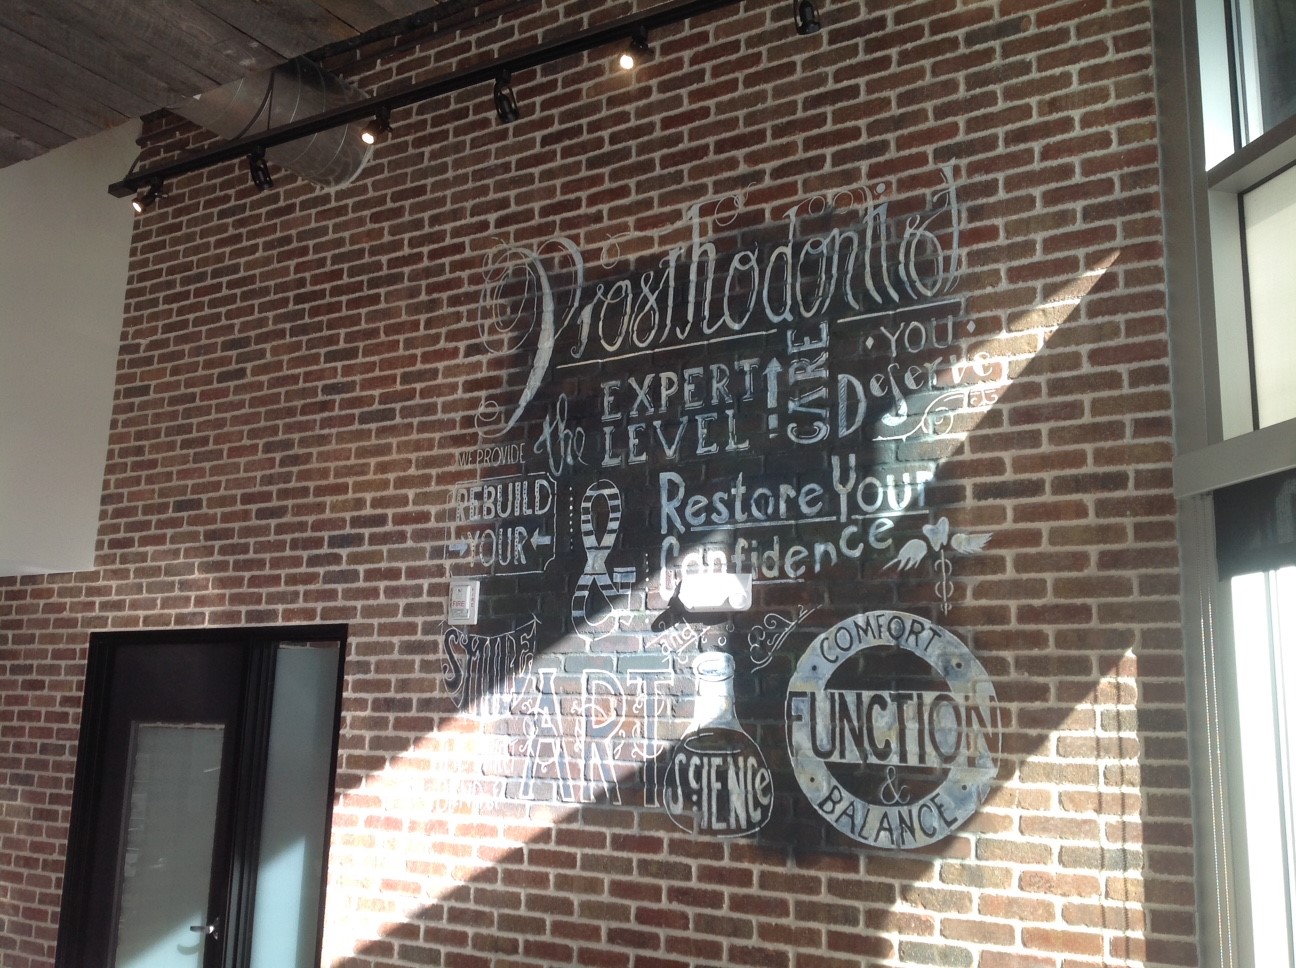 Prosthodontist
WE PROVIDE the EXPERT LEVEL CARE
YOU
Deserve
REBUILD
YOUR
SMILE
&
Restore Your
Confidence
and
ART
SCIENCE
COMFORT
FUNCTION
&
BALANCE
FIRE